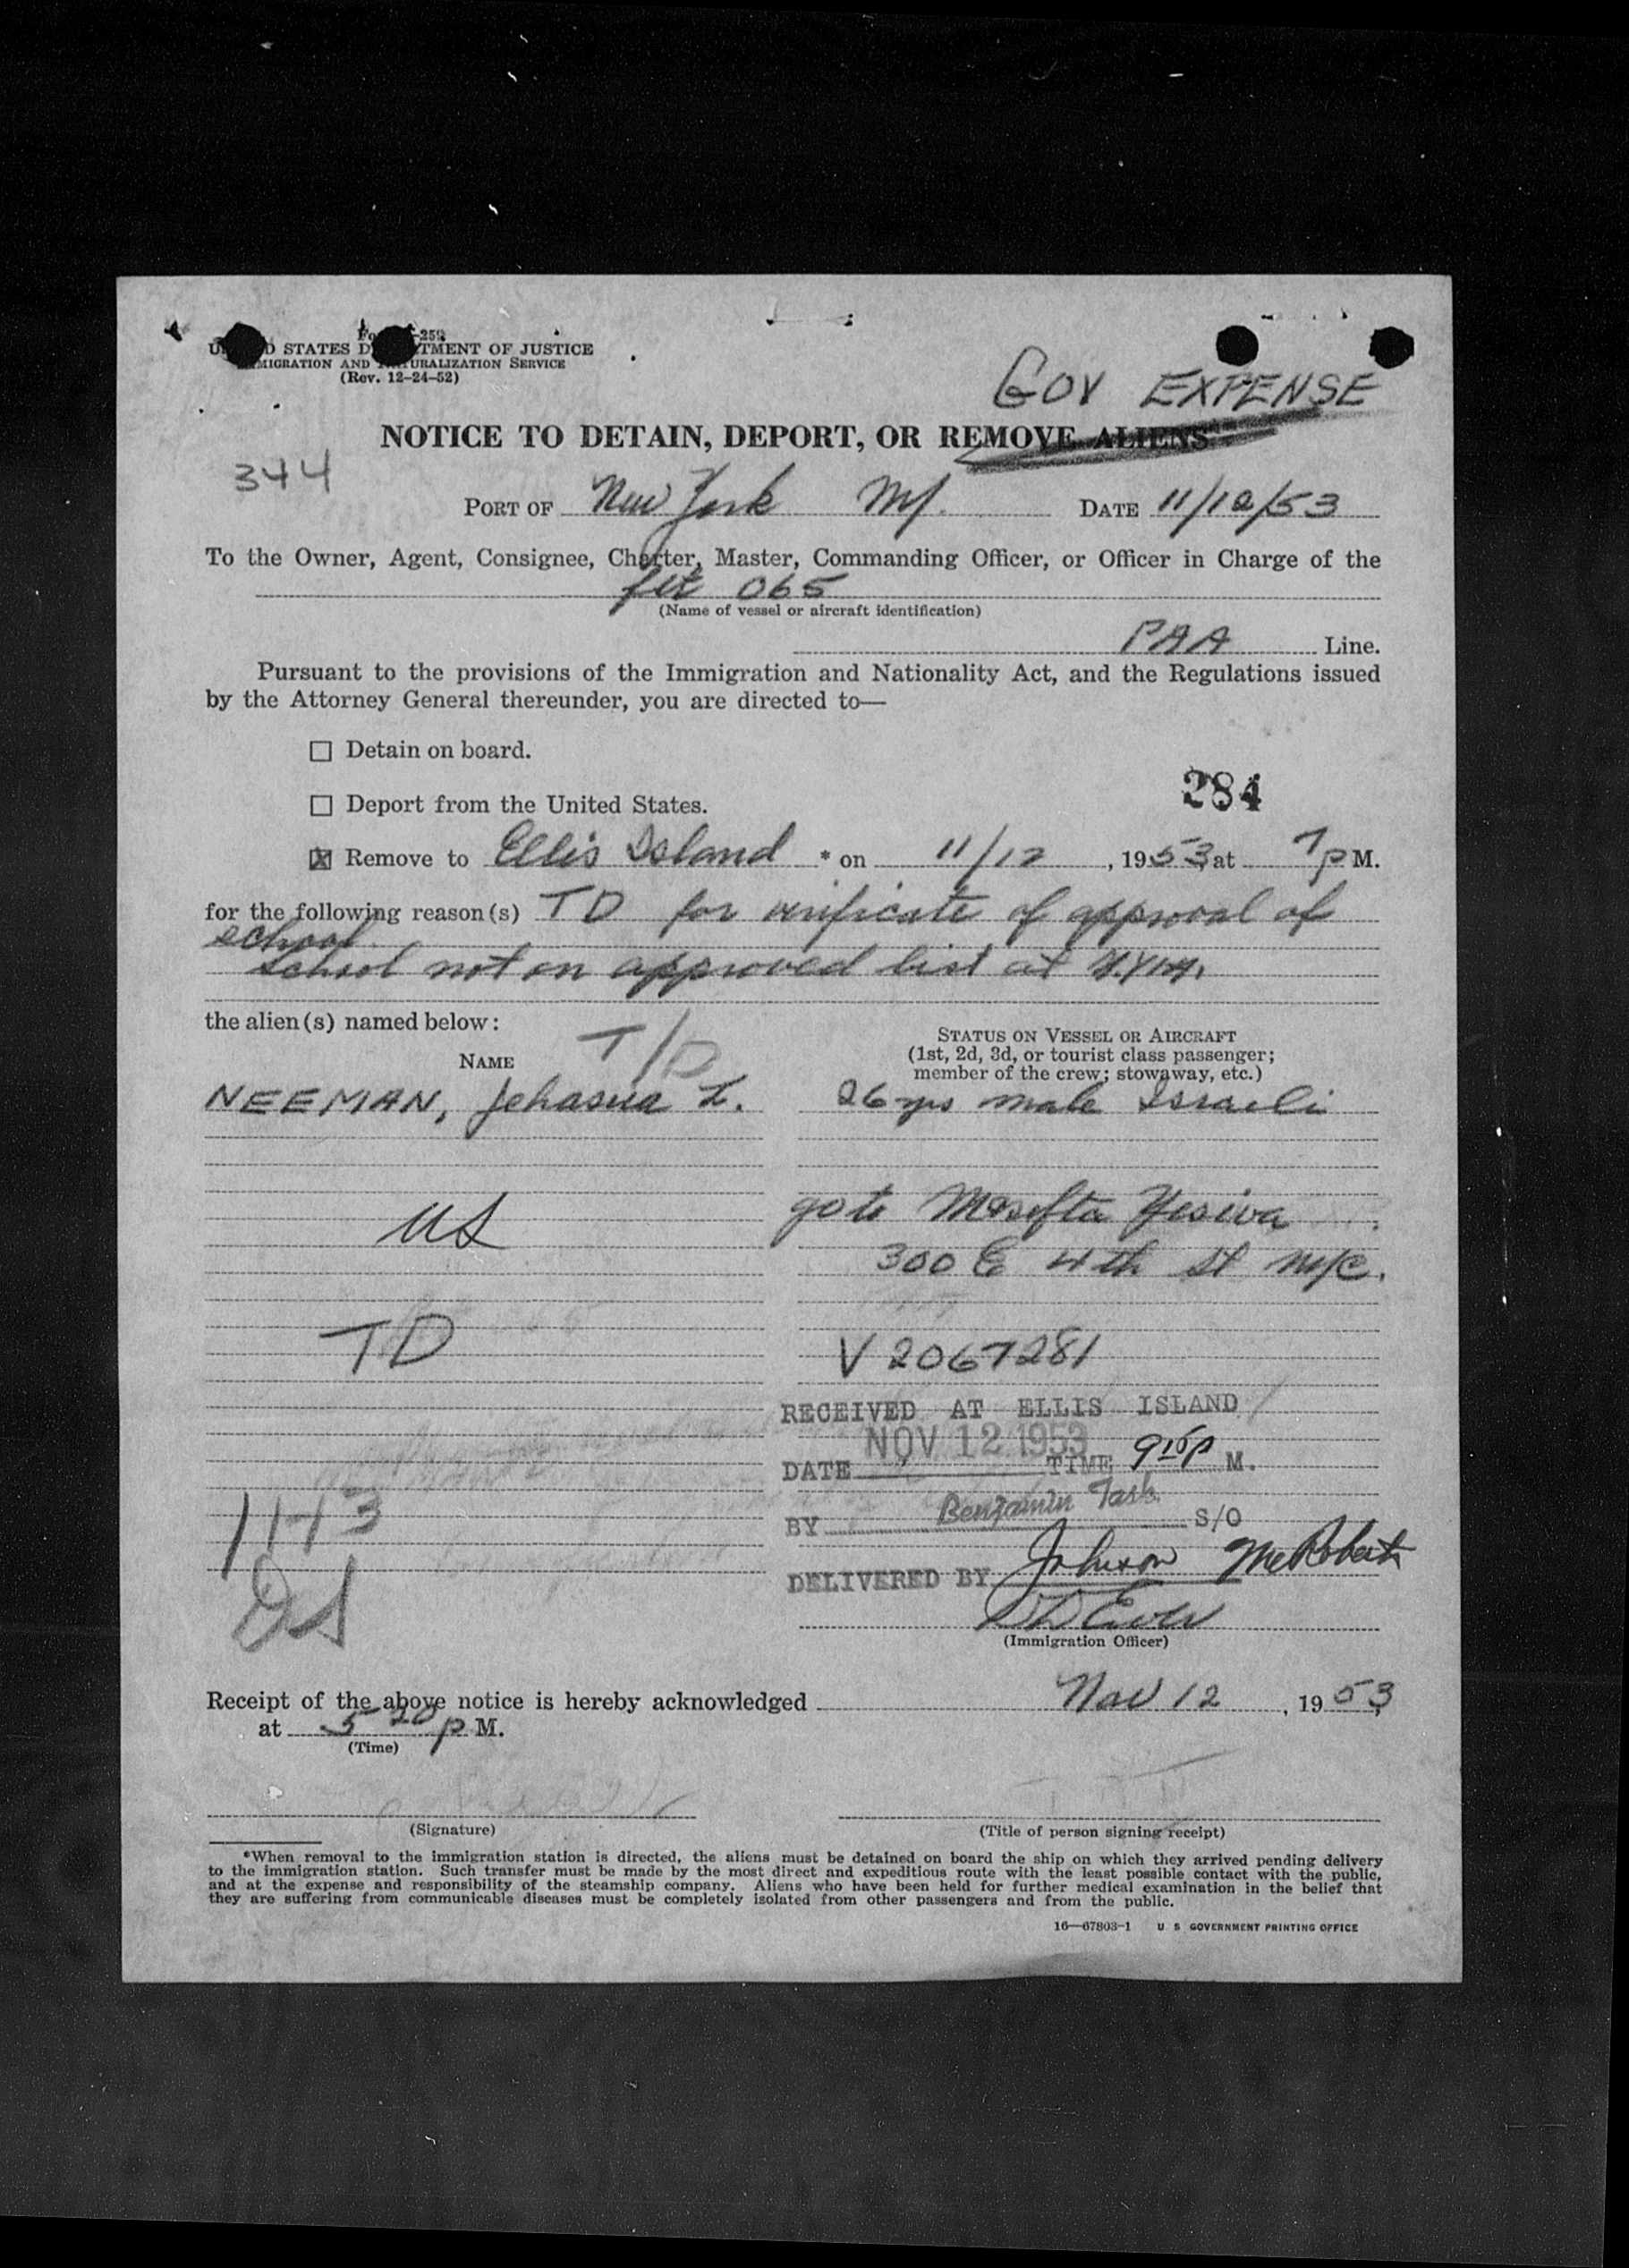 Fo -259
U D STATES D TMENT OF JUSTICE
MIGRATION AND NATURALIZATION SERVICE
(Rev. 12-24-52)
GOV EXPENSE
NOTICE TO DETAIN, DEPORT, OR REMOVE ALIENS
344
PORT OF New York NY. DATE 11/12/53
To the Owner, Agent, Consignee, Charter, Master, Commanding Officer, or Officer in Charge of the
flt 065
(Name of vessel or aircraft identification)
PAA Line.
Pursuant to the provisions of the Immigration and Nationality Act, and the Regulations issued
by the Attorney General thereunder, you are directed to—
☐ Detain on board.
284
☐ Deport from the United States.
☒ Remove to Ellis Island * on 11/12, 1953, at 7 p M.
for the following reason(s) TD for verificate of approval of
school
School not on approved list at
the alien(s) named below:
T/D
NAME
STATUS ON VESSEL OR AIRCRAFT
(1st, 2d, 3d, or tourist class passenger;
member of the crew; stowaway, etc.)
NEEMAN, Jehasua L. 26 yrs male Israeli
US
go to Mesifta Yesiva
300 E 4th St NYC.
TD
V 2067281
RECEIVED AT ELLIS ISLAND
NOV 12 1953
DATE TIME 9 15 p M.
BY Benjamin Tash S/O
1143
DELIVERED BY Johnson McRoberts
DS
(Immigration Officer)
Receipt of the above notice is hereby acknowledged Nov 12, 1953,
at 5 20 p M.
(Time)
(Signature)
(Title of person signing receipt)
*When removal to the immigration station is directed, the aliens must be detained on board the ship on which they arrived pending delivery
to the immigration station. Such transfer must be made by the most direct and expeditious route with the least possible contact with the public,
and at the expense and responsibility of the steamship company. Aliens who have been held for further medical examination in the belief that
they are suffering from communicable diseases must be completely isolated from other passengers and from the public.
16—67803-1 U S GOVERNMENT PRINTING OFFICE